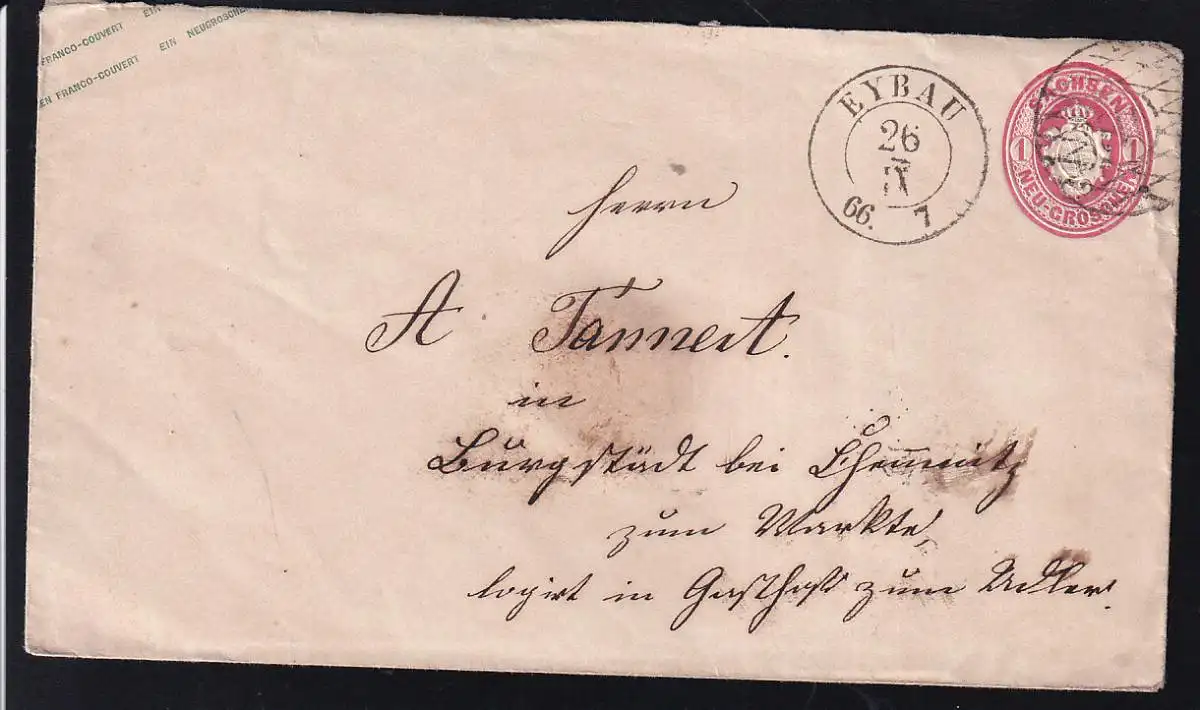 FRANCO-COUVERT EIN
EN FRANCO-COUVERT EIN NEUGROSCHEN
EYBAU
26
IX
66. 7
SACHSEN
1 1
NEU-GROSCHEN
Herrn
A Tannert.
in
Burgstädt bei Chemnitz
zum Markte,
logirt in Gasthof zum Adler.